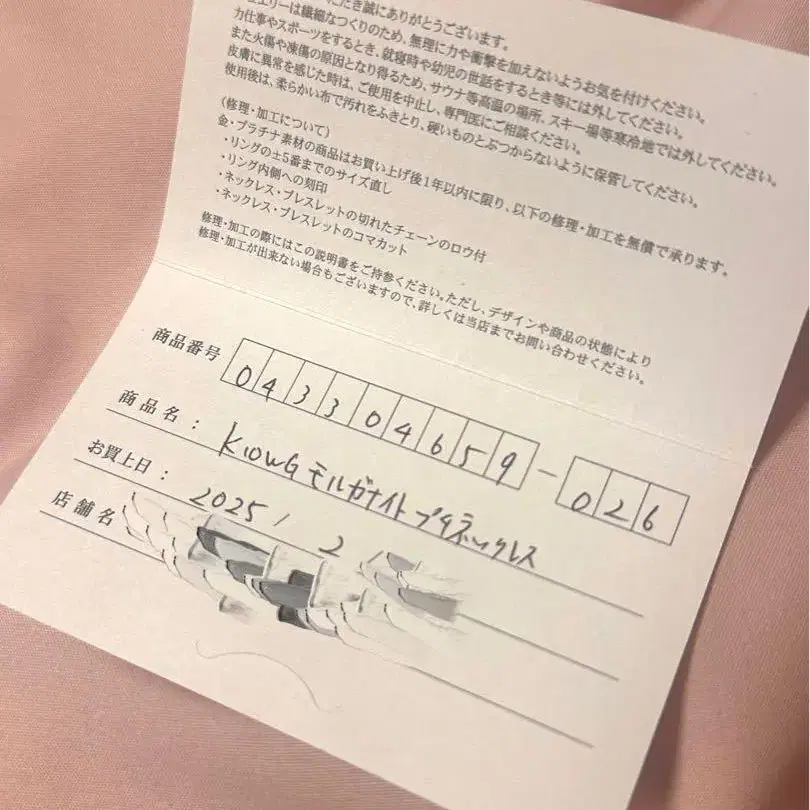 ただき誠にありがとうございます。
ュエリーは繊細なつくりのため、無理に力や衝撃を加えないようお気を付けください。
力仕事やスポーツをするとき、就寝時や幼児の世話をするとき等には外してください。
また火傷や凍傷の原因となり得るため、サウナ等高温の場所、スキー場等寒冷地では外してください。
皮膚に異常を感じた時は、ご使用を中止し、専門医にご相談ください。
使用後は、柔らかい布で汚れをふきとり、硬いものとぶつからないように保管してください。
〈修理・加工について〉
金・プラチナ素材の商品はお買い上げ後1年以内に限り、以下の修理・加工を無償で承ります。
・リングの±5番までのサイズ直し
・リング内側への刻印
・ネックレス・ブレスレットの切れたチェーンのロウ付
・ネックレス・ブレスレットのコマカット
修理・加工の際にはこの説明書をご持参ください。ただし、デザインや商品の状態により
修理・加工が出来ない場合もございますので、詳しくは当店までお問い合わせください。
商品番号 043304659-026
商品名： K10WG モルガナイト プチネックレス
お買上日： 2025 / 2 /
店舗名